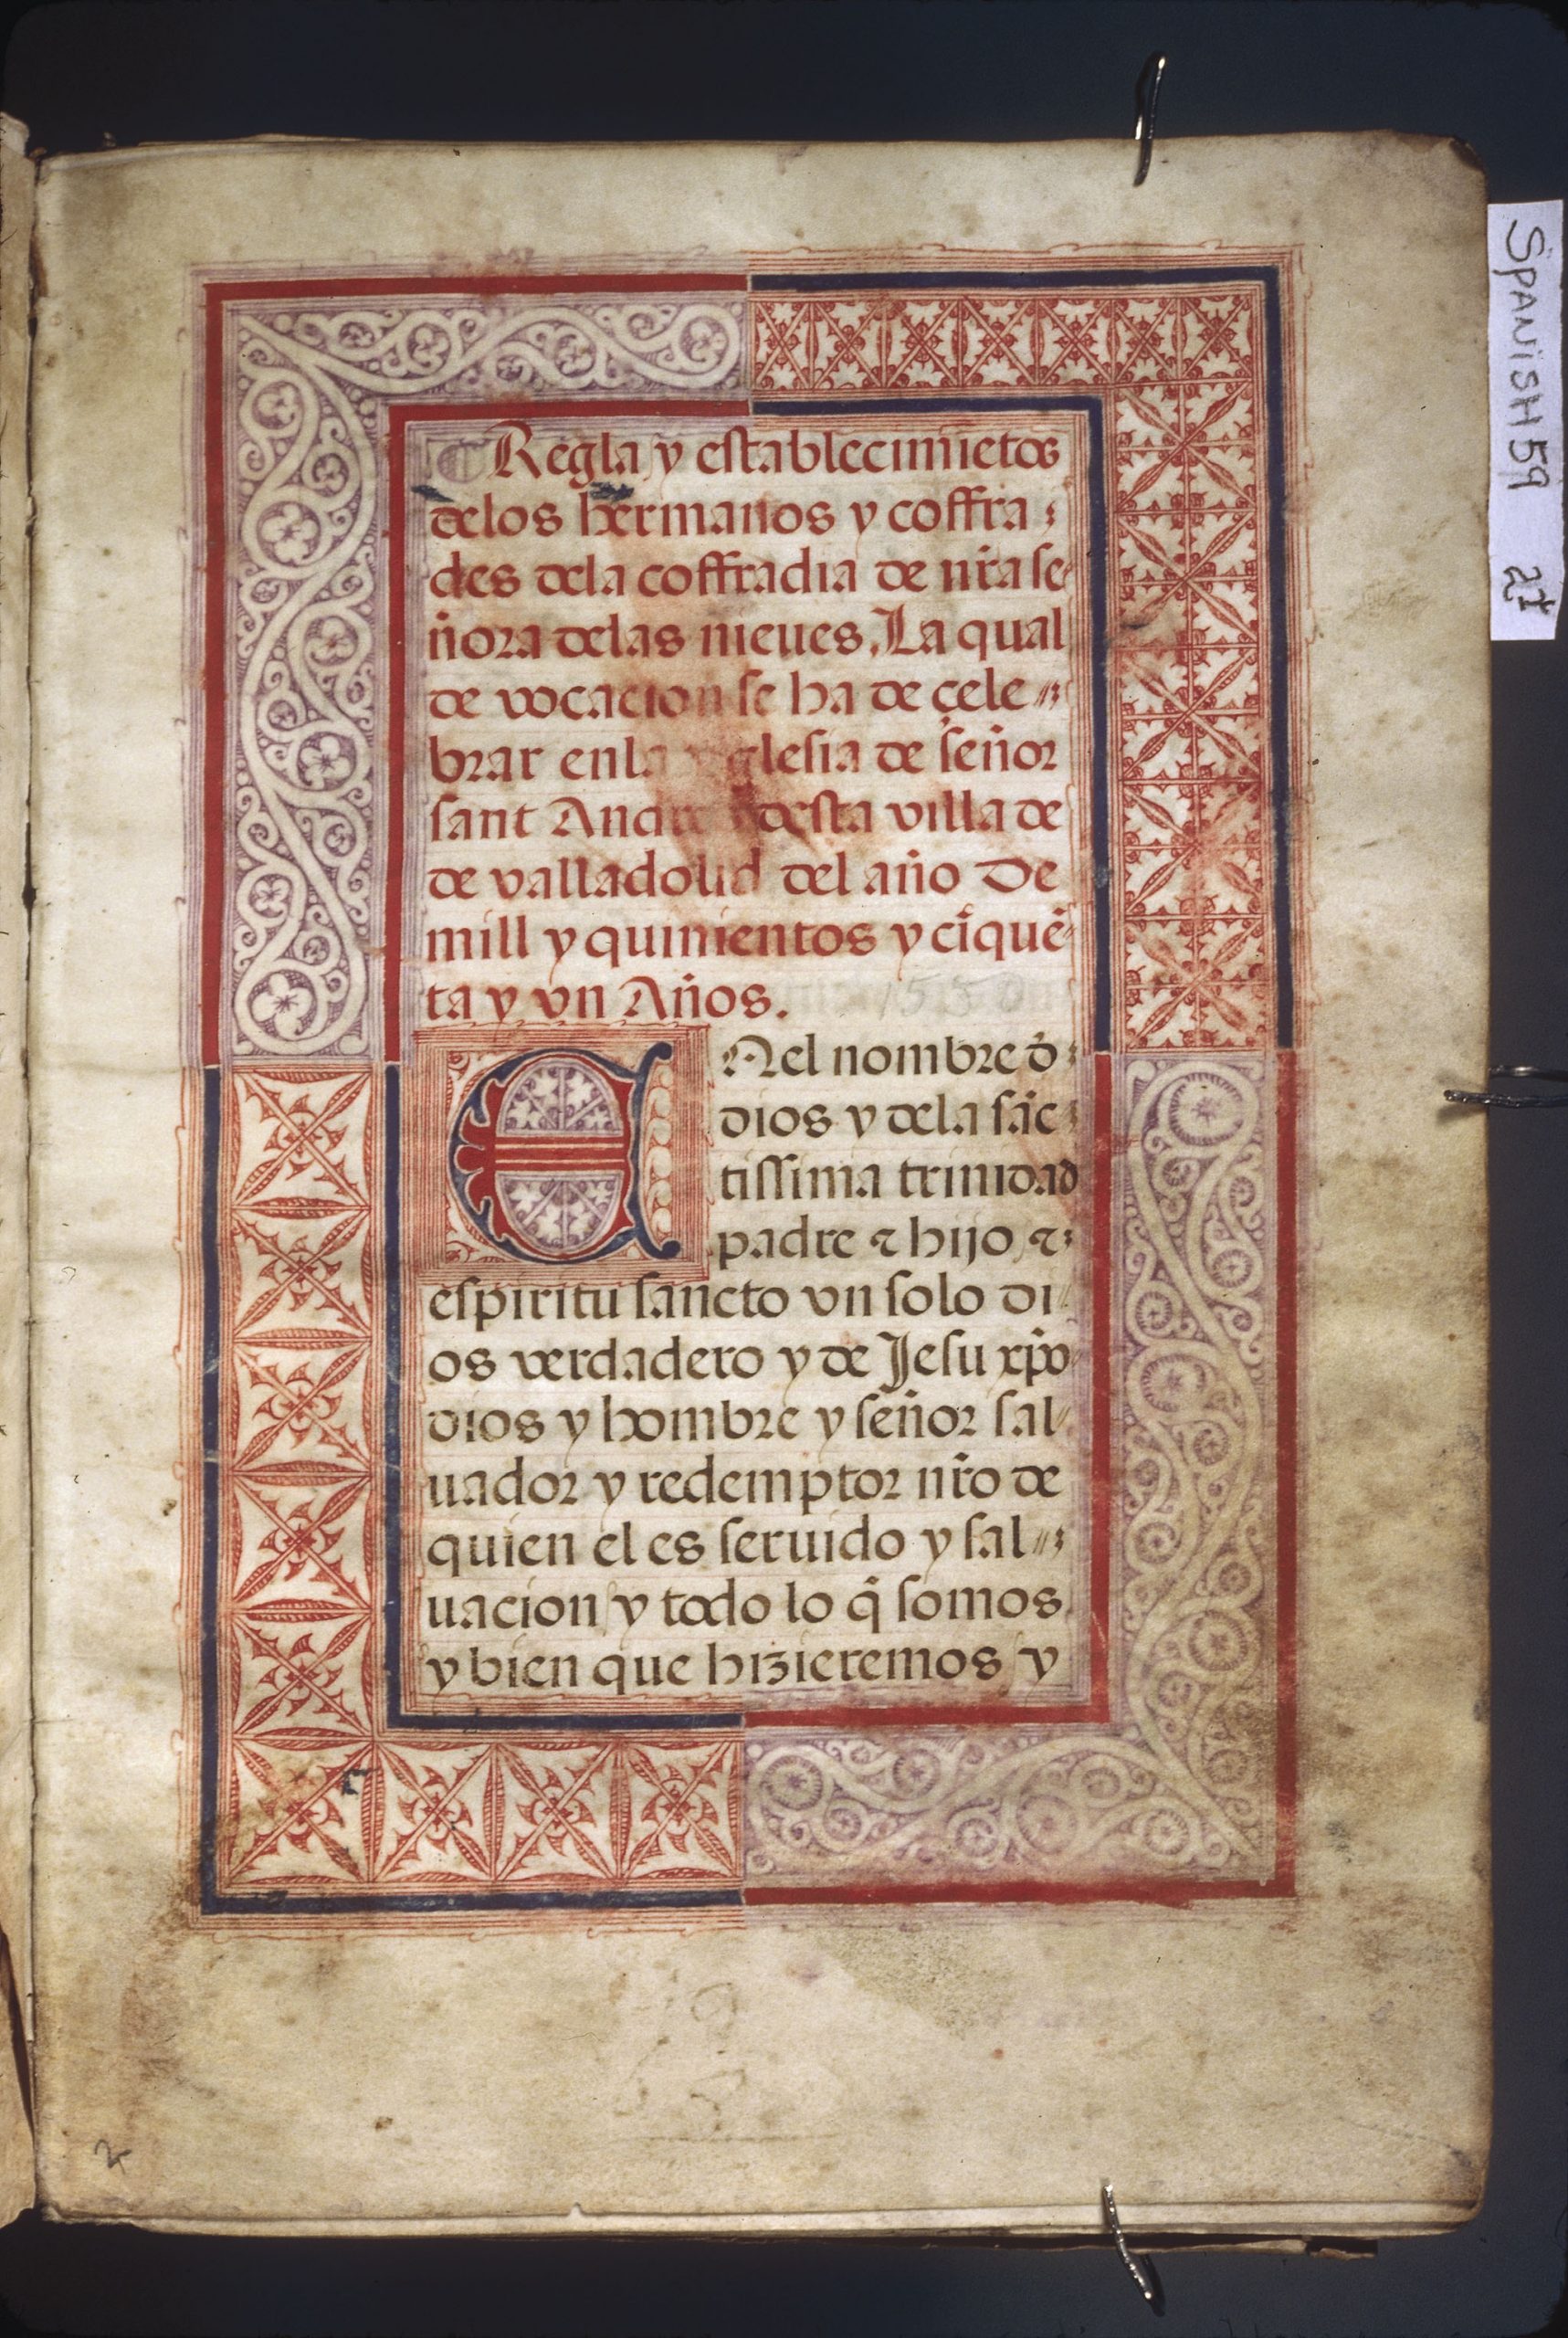 Regla y establecimiētos
delos hermanos y coffra
des dela coffradia de nr̄a se
ñora delas nieues. La qual
de vocacion se ha de çele
brar enla yglesia de señor
sant Andres desta villa de
de valladolid del año De
mill y quinientos y cīquē
ta y vn Años.
1550
ENel nombre d̄
dios y dela sāc
tissima trinidad
padre ⁊ hijo ⁊
espiritu sancto vn solo di
os verdadero y de Jesu xp̄o
dios y hombre y señor sal
uador y redemptor nr̄o de
quien el es seruido y sal
uacion y todo lo q̄ somos
y bien que hizieremos y
2
SPANISH 59